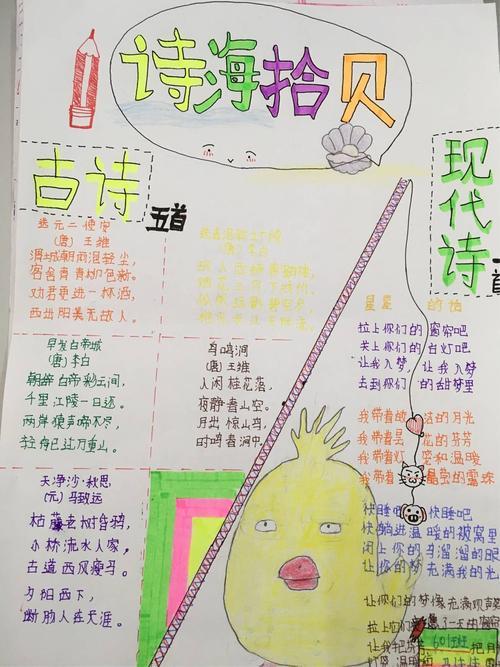 诗海拾贝
古诗
五首
现代诗
一首
送元二使安
(唐) 王维
渭城朝雨浥轻尘,
客舍青青柳色新。
劝君更进一杯酒,
西出阳关无故人。
(唐) 李白
故人西辞黄鹤楼,
烟花三月下扬州。
早发白帝城
(唐) 李白
朝辞白帝彩云间,
千里江陵一日还。
两岸猿声啼不尽,
轻舟已过万重山。
鸟鸣涧
王维
人闲桂花落,
夜静春山空。
月出惊山鸟,
时鸣春涧中。
天净沙·秋思
(元) 马致远
枯藤老树昏鸦,
小桥流水人家,
古道西风瘦马。
夕阳西下,
断肠人在天涯。
星星 的怡
拉上你们的窗帘吧
关上你们的台灯吧
让我入梦,让我入梦
去到你们的甜梦里
我带着故 的月光
我带着 花的芬芳
我带着灯 和温暖
我带着 的露珠
快睡吧 快睡吧
快躺进温暖的被窝里
闭上你的乌溜溜的眼
让你的梦充满我的光
让你们的梦像充满
拉上它们 了一天的窗帘
601班